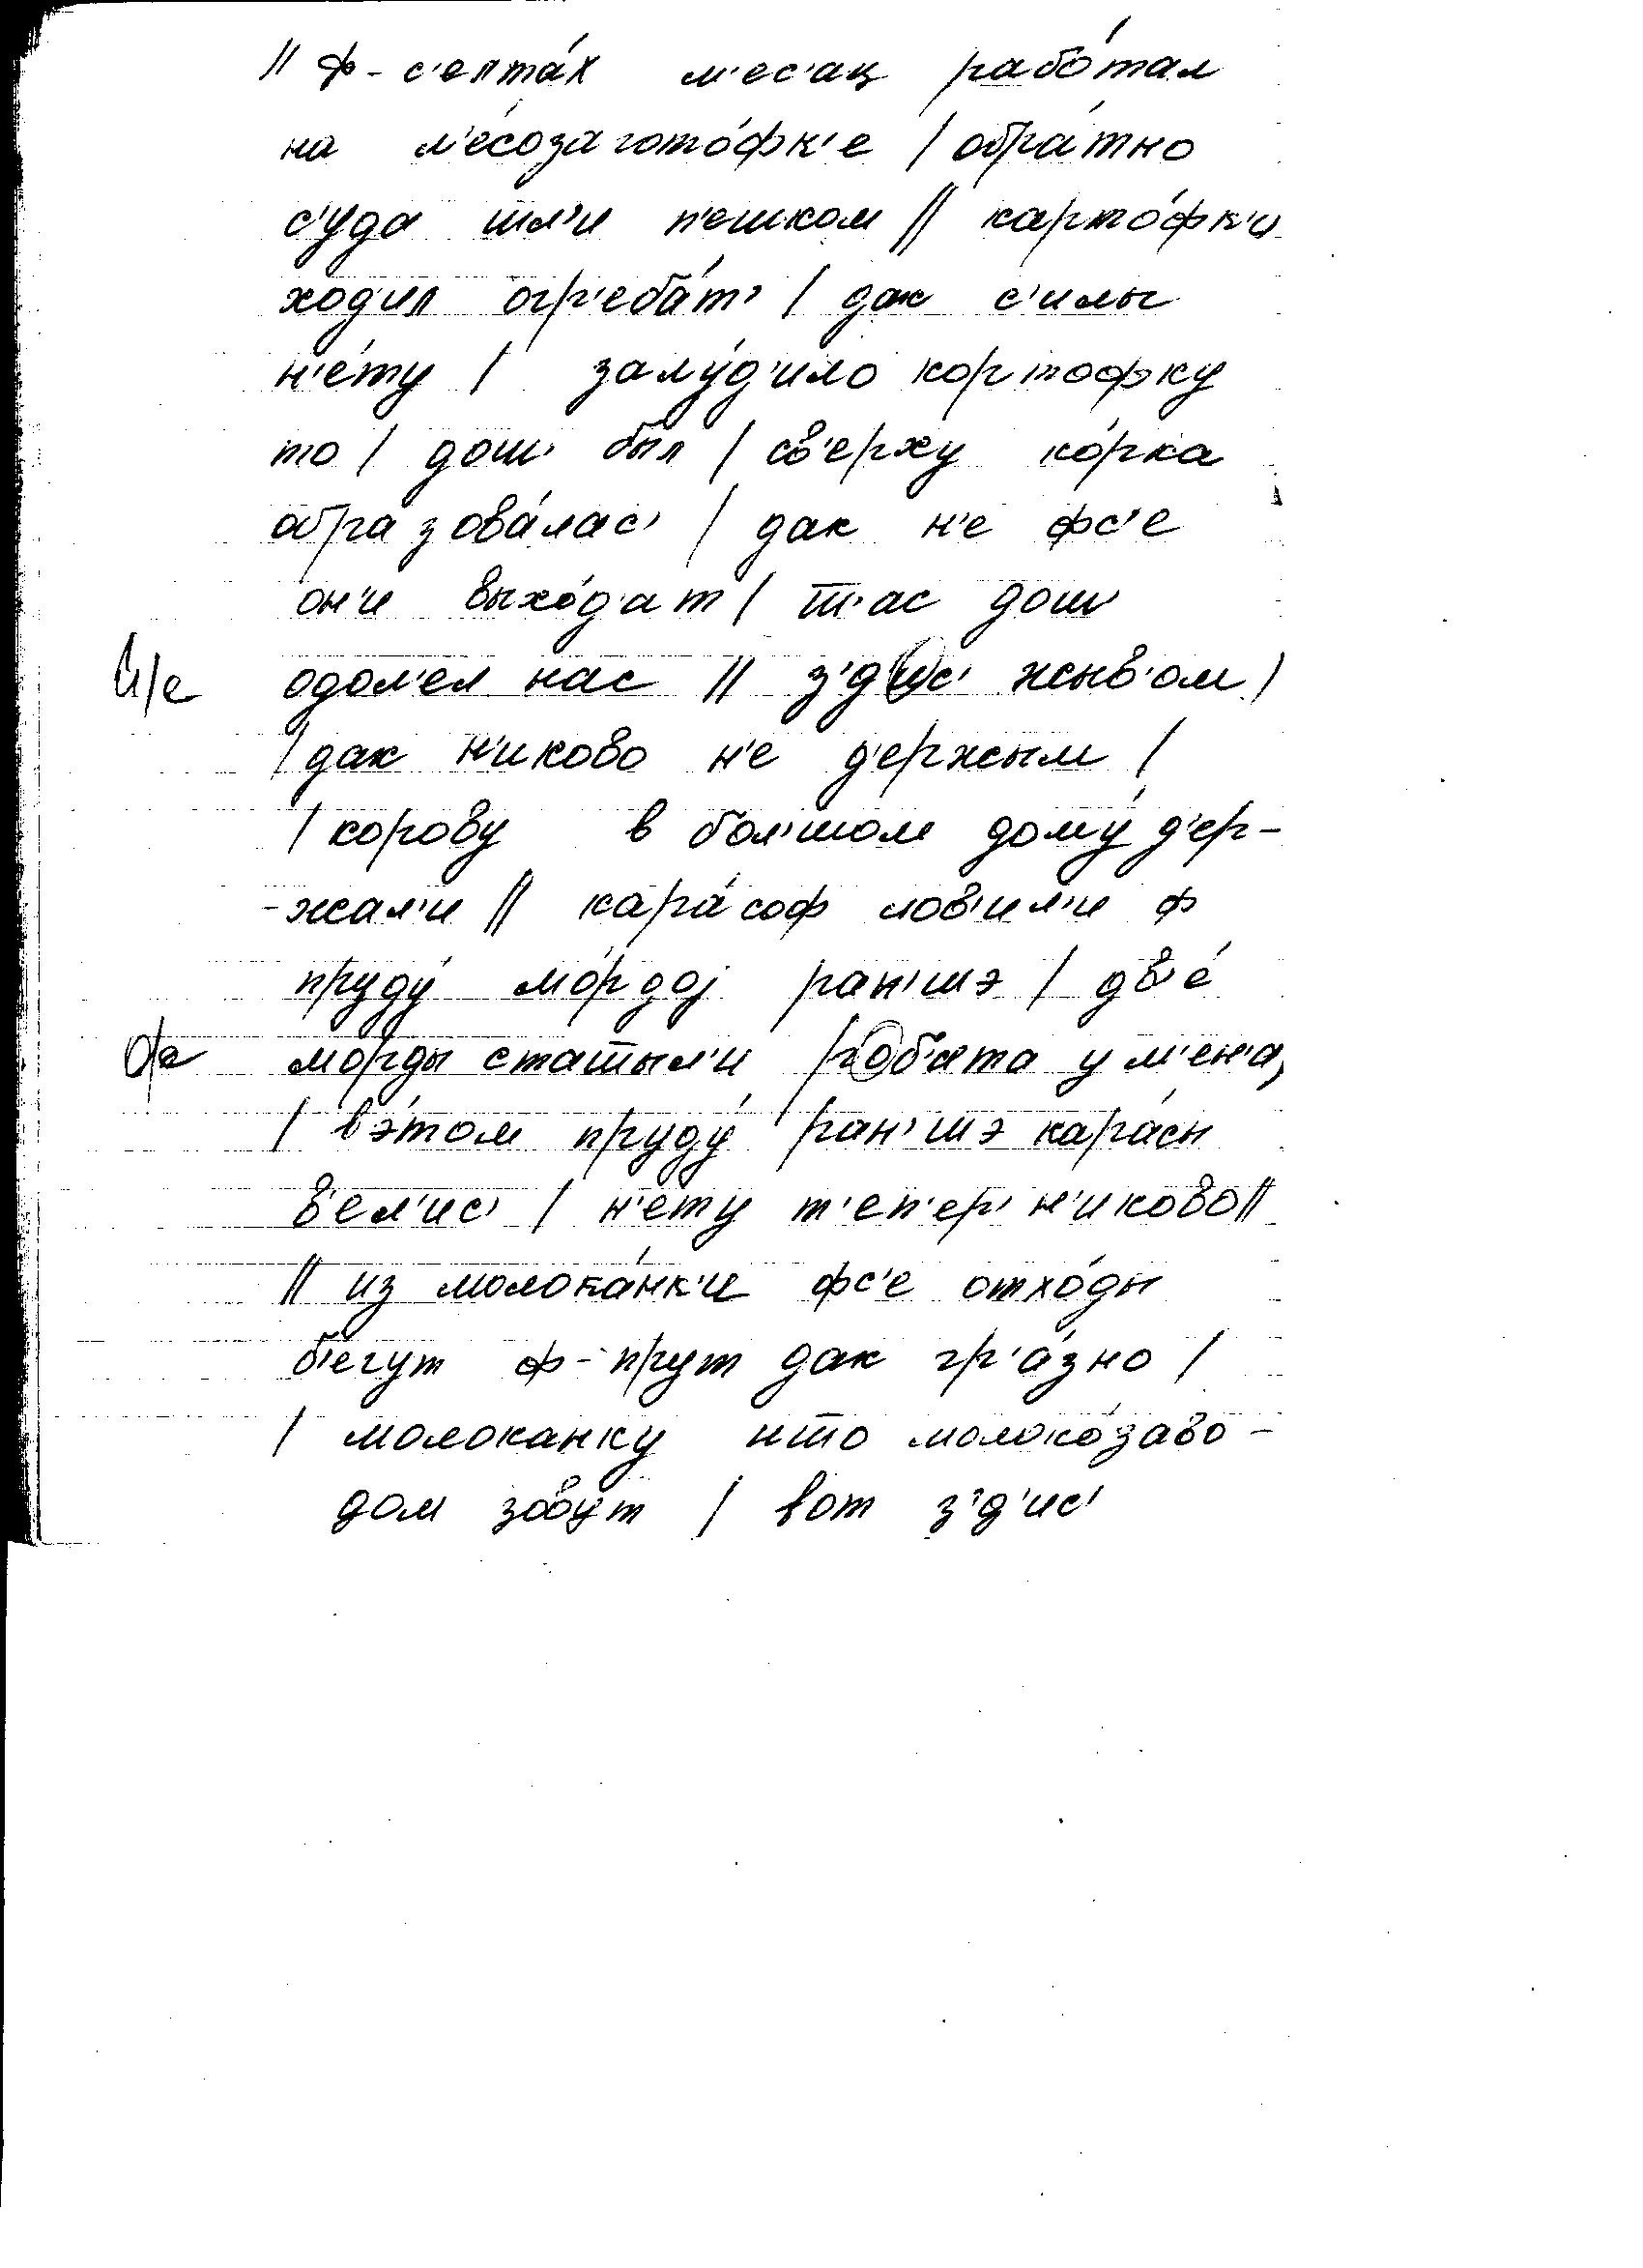 || ф- с'елта́х м'ес'ац рабо́тал
на м'е́созагото́фк'е | обра́тно
с'уда шл'и п'ешком || карто́фк'и
ход'ил огр'еба́т' | дак с'илы
н'е́ту | залу́д'ило кортофку
то | дош' был | св'ерху ко́рка
образова́лас' | дак н'е фс'е
он'и выхо́д'ат | т̅'ас дош'
одол'ел нас || з'д'ис' жыв'ом |
и/е
| дак н'иково н'е д'ержым |
| корову в бол'шом дому́ д'ер-
-жал'и || кара́соф лов'ил'и ф
пруду́ мо́рдој ран'шэ | дв'е́
морды стат̅ыл'и роб'ата у м'ен'а,
о/е
| в э́том пруду́ ран'шэ кара́сы
в'ел'ис' | н'ету т'еп'ер' н'иково ||
|| из молока́нк'и фс'е отхо́ды
б'егут ф-прут дак гр'а́зно |
| молоканку што молоко́заво-
дом зовут | вот з'д'ис'